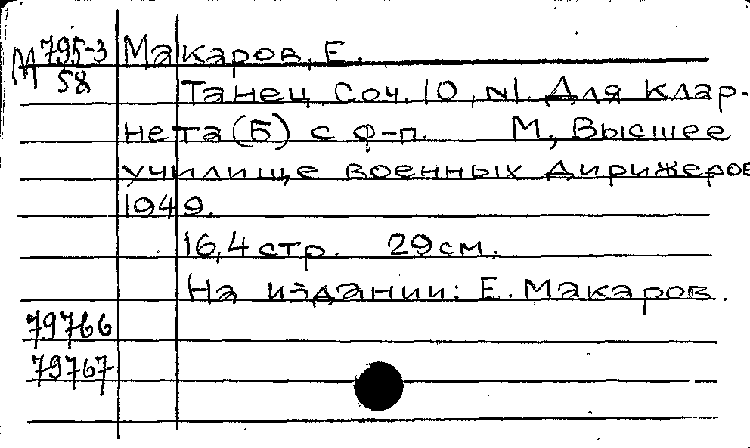 М 795-3
58
Макаров, Е.
Танец Соч. 10, №1. Для клар-
нета (Б) с ф-п. М, Высшее
училище военных дирижеров
1949.
16,4 стр. 29 см.
На издании: Е. Макаров.
79766
79767